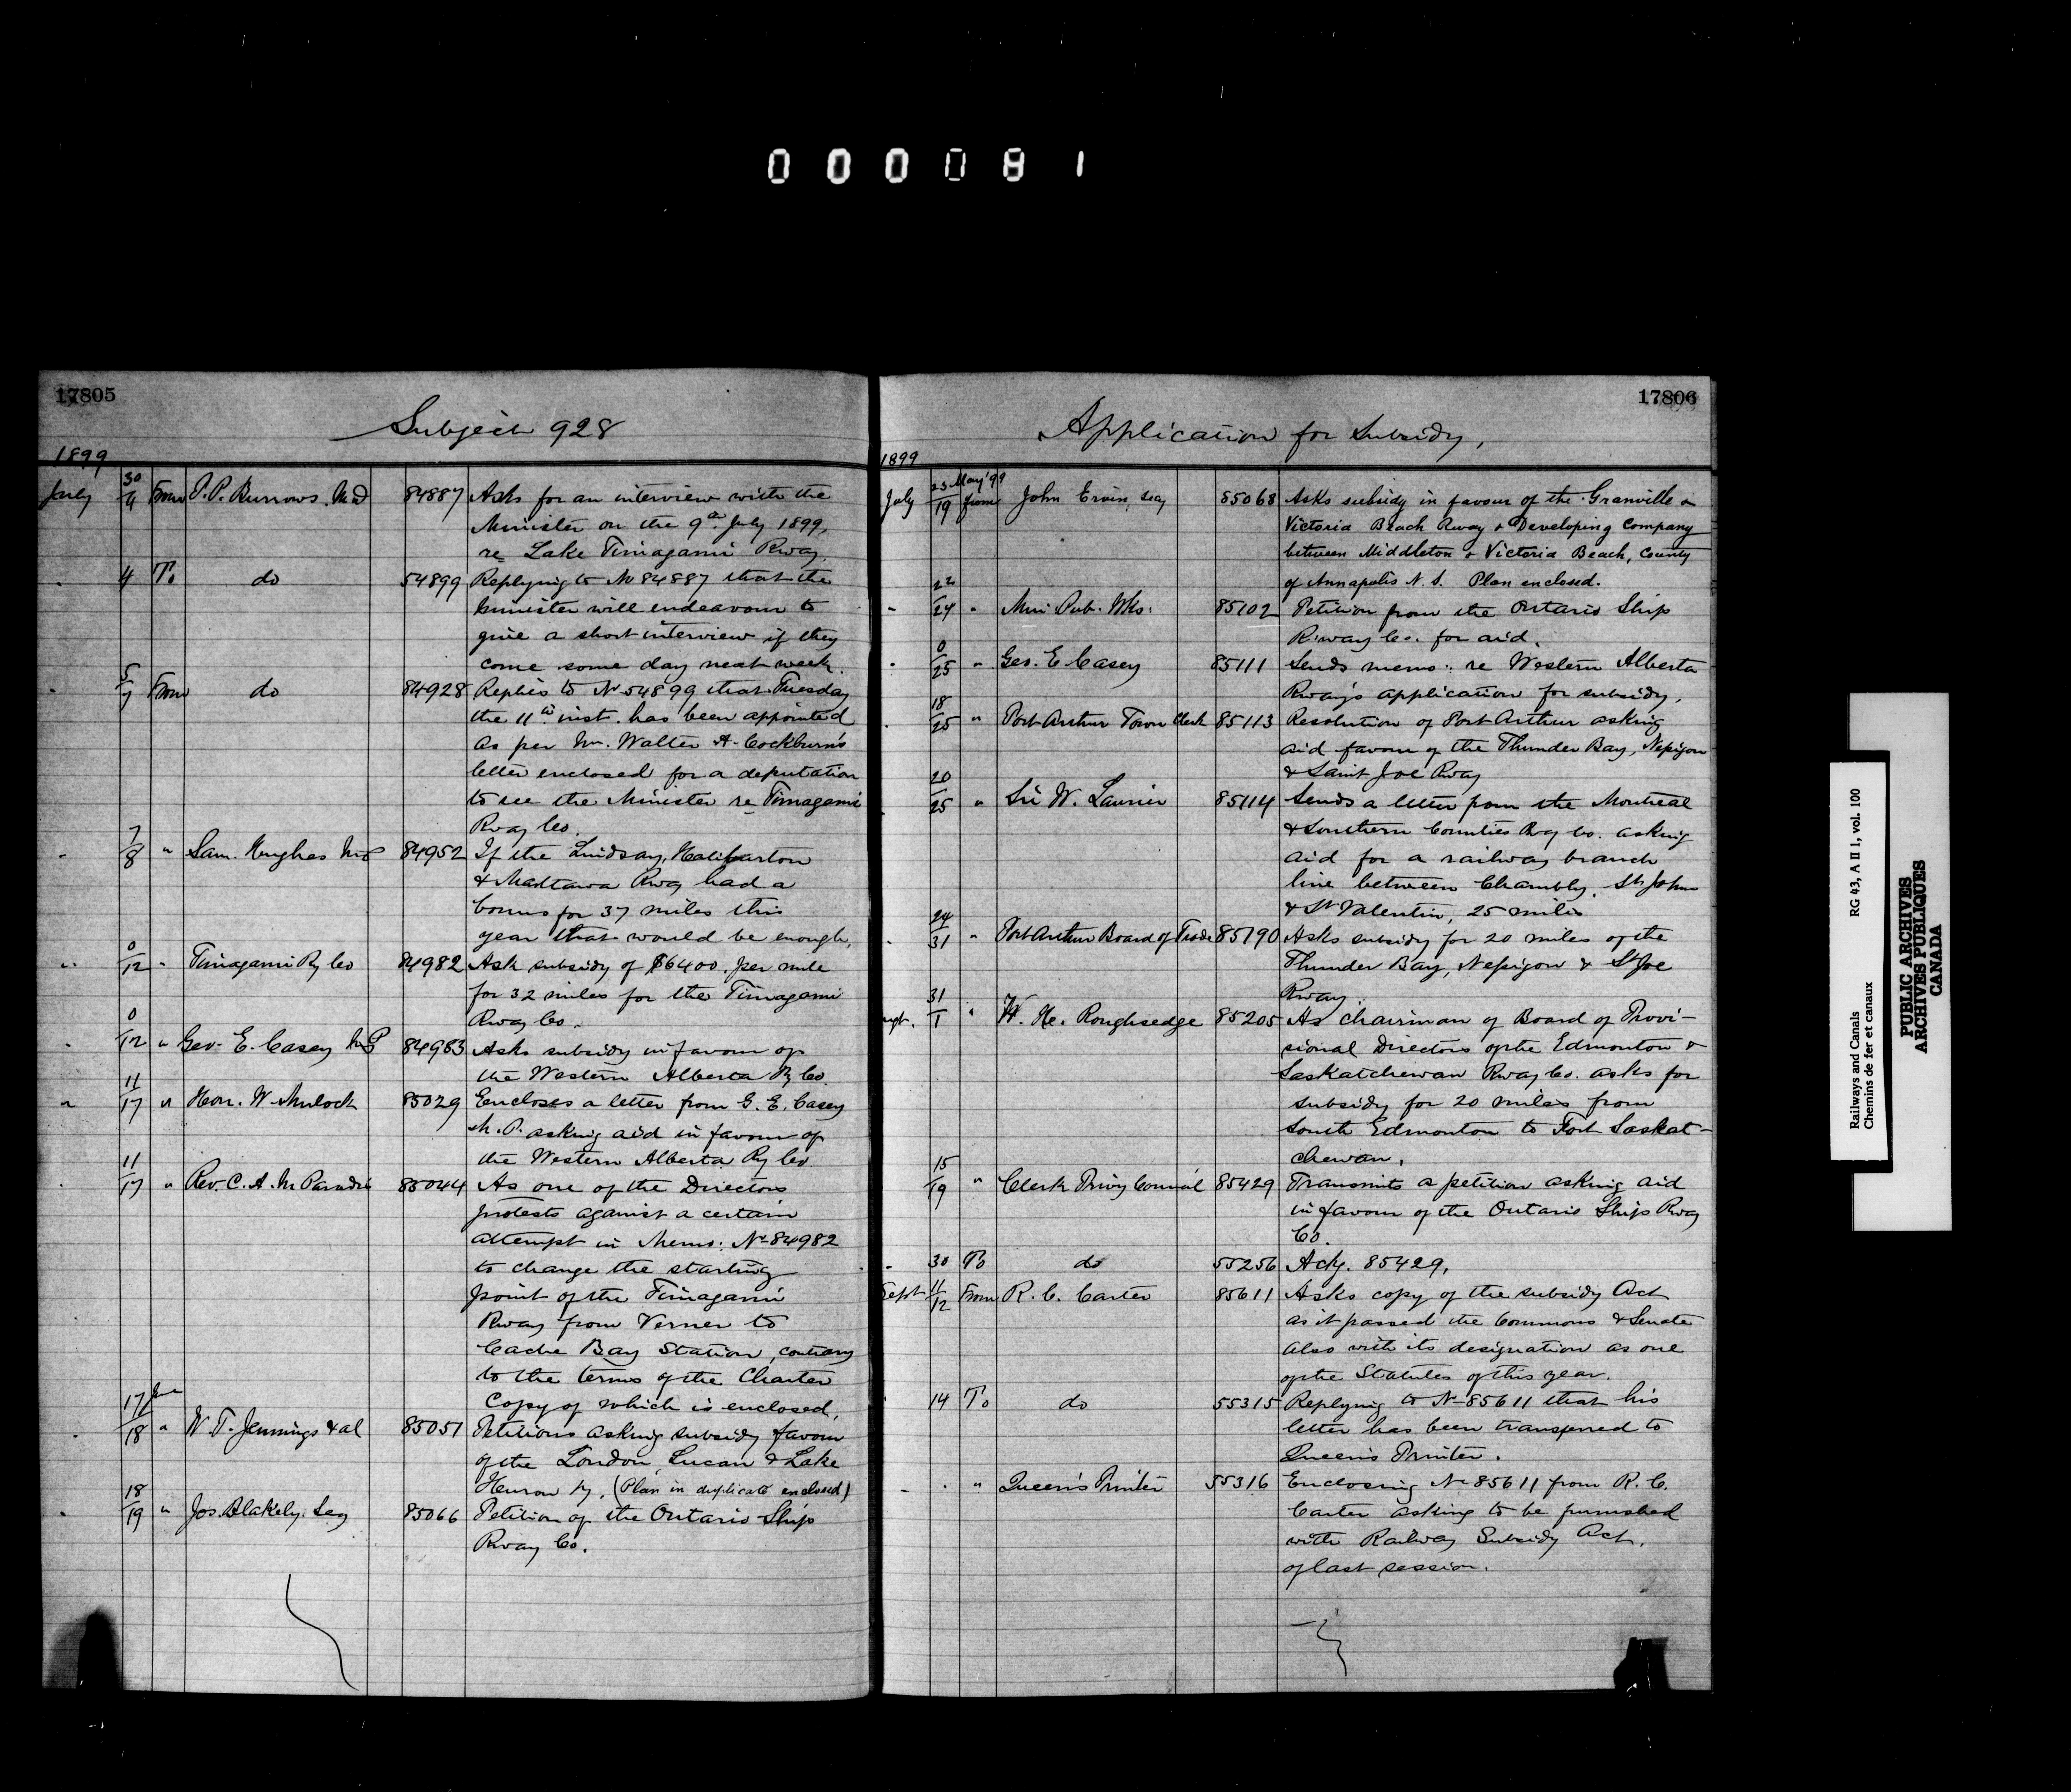 000081
17805
Subject 928
1899
July 30/4 From P. P. Burrows. M.D 84887 Asks for an interview with the
Minister on the 9th July 1899,
re Lake Timagami Rway.
" 4 To do 54899 Replying to No 84887 that the
Minister will endeavour to
give a short interview if they
come some day next week.
" 5/7 From do 84928 Replies to No 54899 that Tuesday
the 11th inst. has been appointed
as per Mr. Walter A. Cockburn's
letter enclosed for a deputation
to see the Minister re Timagami
Rway Co.
" 7/8 " Sam. Hughes M.P 84952 If the Lindsay, Haliburton
& Mattawa Rway had a
bonus for 37 miles this
year that would be enough.
" 0/12 " Timagami Ry Co 84982 Ask subsidy of $6400. per mile
for 32 miles for the Timagami
Rway Co.
" 0/12 " Geo. E. Casey M.P 84983 Asks subsidy in favour of
the Western Alberta Ry Co.
" 11/17 " Hon. W. Mulock 85029 Encloses a letter from G. E. Casey
M.P. asking aid in favour of
the Western Alberta Ry Co.
" 11/17 " Rev. C. A. M. Paradis 85044 As one of the Directors
protests against a certain
attempt in Memo: No 84982
to change the starting
point of the Timagami
Rway from Verner to
Cache Bay Station, contrary
to the terms of the Charter
Copy of which is enclosed.
" 17 June/18 " W. T. Jennings & al 85051 Petitions asking subsidy favour
of the London, Lucan & Lake
Huron Ry. (Plan in duplicate enclosed)
" 18/19 " Jos. Blakely. Secy 85066 Petition of the Ontario Ship
Rway Co.
17806
Application for Subsidy,
1899
July 23 May '99/19 from John Ervin, Secy 85068 Asks subsidy in favour of the Granville &
Victoria Beach Rway & Developing Company
between Middleton & Victoria Beach, County
of Annapolis N. S. Plan enclosed.
" 22/24 " Min. Pub. Wks: 85102 Petition from the Ontario Ship
Rway Co. for aid.
" 0/25 " Geo. E Casey 85111 Sends memo: re Western Alberta
Rway's application for subsidy.
" 18/25 " Port Arthur Town Clerk 85113 Resolution of Port Arthur asking
aid favour of the Thunder Bay, Nepigon
& Saint Joe Rway
20/25 " Sir W. Laurier 85114 Sends a letter from the Montreal
& Southern Counties Rway Co. asking
aid for a railway branch
line between Chambly, St Johns
& St Valentin, 25 miles
" 24/31 " Port Arthur Board of Trade 85190 Asks subsidy for 20 miles of the
Thunder Bay, Nepigon & St Joe
Rway.
Augt. 31/1 " W. H. Roughsedge 85205 As chairman of Board of Provi-
sional Directors of the Edmonton &
Saskatchewan Rway Co. asks for
subsidy for 20 miles from
South Edmonton to Fort Saskat-
chewan.
15/19 " Clerk Privy Council 85429 Transmits a petition asking aid
in favour of the Ontario Ship Rway
Co.
" 30 To do 55256 Ackg. 85429.
Sept 11/12 From R. C. Carter 85611 Asks copy of the subsidy Act
as it passed the Commons & Senate
also with its designation as one
of the Statutes of this year.
" 14 To do 55315 Replying to No 85611 that his
letter has been transferred to
Queen's Printer.
" " " Queen's Printer 55316 Enclosing No 85611 from R. C.
Carter asking to be furnished
with Railway Subsidy Act.
of last session.
Railways and Canals RG 43, A II 1, vol. 100
Chemins de fer et canaux
PUBLIC ARCHIVES
ARCHIVES PUBLIQUES
CANADA